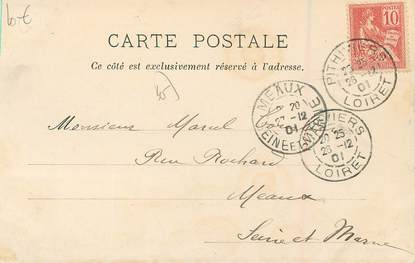 6-€
CARTE POSTALE
Ce côté est exclusivement réservé à l'adresse.
POSTES
10
PITHIVIERS
26 -12
01
LOIRET
MEAUX
20
27 -12
01
SEINE ET MARNE
PITHIVIERS
26 -12
01
LOIRET
Monsieur Marcel
Rue Rochard
Meaux
Seine et Marne